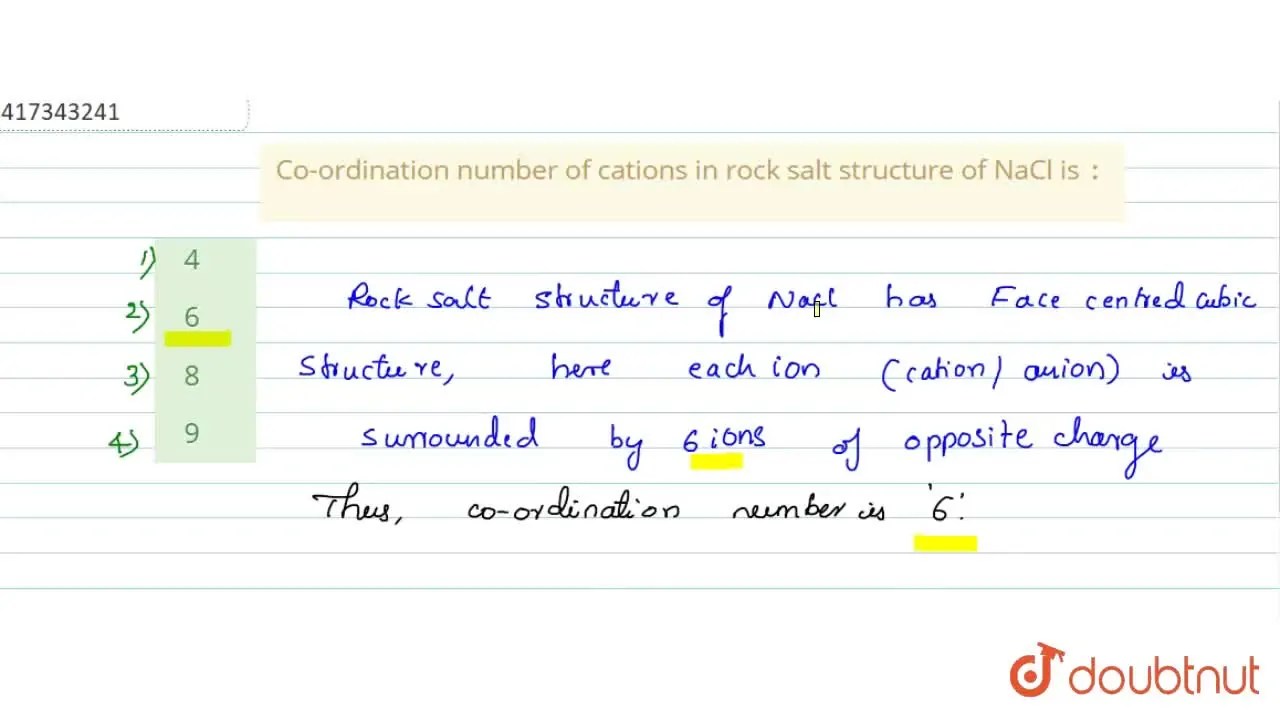 417343241
Co-ordination number of cations in rock salt structure of NaCl is :
1) 4
2) 6
3) 8
4) 9
Rock salt structure of NaCl has Face centred cubic
structure, here each ion (cation/anion) is
surrounded by 6 ions of opposite charge
Thus, co-ordination number is '6'.
doubtnut